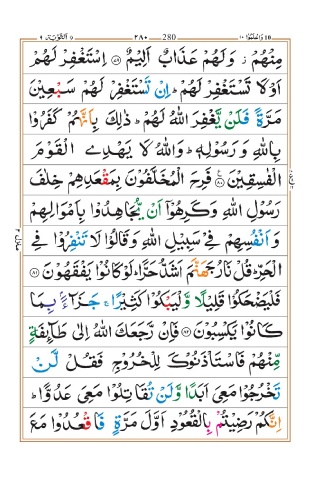 التوبة ٩ ٢٨٠ 280 واعلموٓا ١٠
مِنْهُمْ ز وَلَهُمْ عَذَابٌ اَلِيْمٌ ﴿۷۹﴾ اِسْتَغْفِرْ لَهُمْ
اَوْ لَا تَسْتَغْفِرْ لَهُمْ ؕ اِنْ تَسْتَغْفِرْ لَهُمْ سَبْعِيْنَ
مَرَّةً فَلَنْ يَّغْفِرَ اللهُ لَهُمْ ؕ ذٰلِكَ بِاَنَّهُمْ كَفَرُوْا
بِاللهِ وَ رَسُوْلِهٖ ؕ وَاللهُ لَا يَهْدِى الْقَوْمَ
الْفٰسِقِيْنَ ﴿۸۰﴾ فَرِحَ الْمُخَلَّفُوْنَ بِمَقْعَدِهِمْ خِلٰفَ
رَسُوْلِ اللهِ وَكَرِهُوْٓا اَنْ يُّجَاهِدُوْا بِاَمْوَالِهِمْ
وَ اَنْفُسِهِمْ فِىْ سَبِيْلِ اللهِ وَقَالُوْا لَا تَنْفِرُوْا فِى
الْحَرِّ ؕ قُلْ نَارُ جَهَنَّمَ اَشَدُّ حَرًّا ؕ لَوْ كَانُوْا يَفْقَهُوْنَ ﴿۸۱﴾
فَلْيَضْحَكُوْا قَلِيْلًا وَّلْيَبْكُوْا كَثِيْرًا ۚ جَزَآءًۢ بِمَا
كَانُوْا يَكْسِبُوْنَ ﴿۸۲﴾ فَاِنْ رَّجَعَكَ اللهُ اِلٰى طَآئِفَةٍ
مِّنْهُمْ فَاسْتَاْذَنُوْكَ لِلْخُرُوْجِ فَقُلْ لَّنْ
تَخْرُجُوْا مَعِىَ اَبَدًا وَّلَنْ تُقَاتِلُوْا مَعِىَ عَدُوًّا ؕ
اِنَّكُمْ رَضِيْتُمْ بِالْقُعُوْدِ اَوَّلَ مَرَّةٍ فَاقْعُدُوْا مَعَ